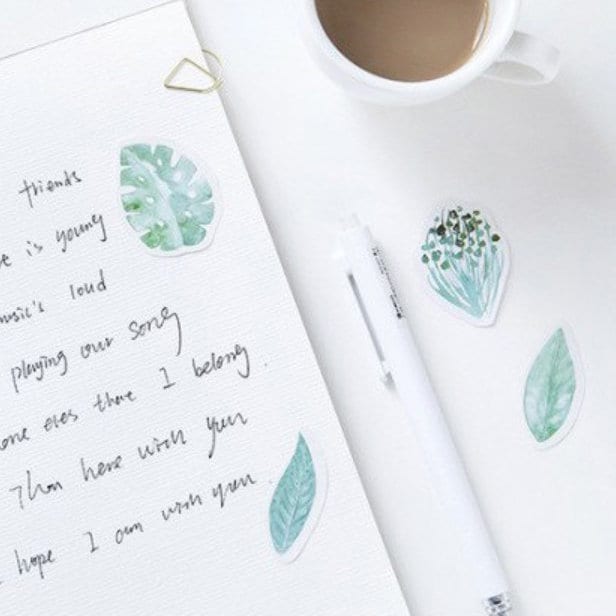 friends
e is young
music's loud
playing our song
one eles there I belong.
Than here with you
hope I am with you.